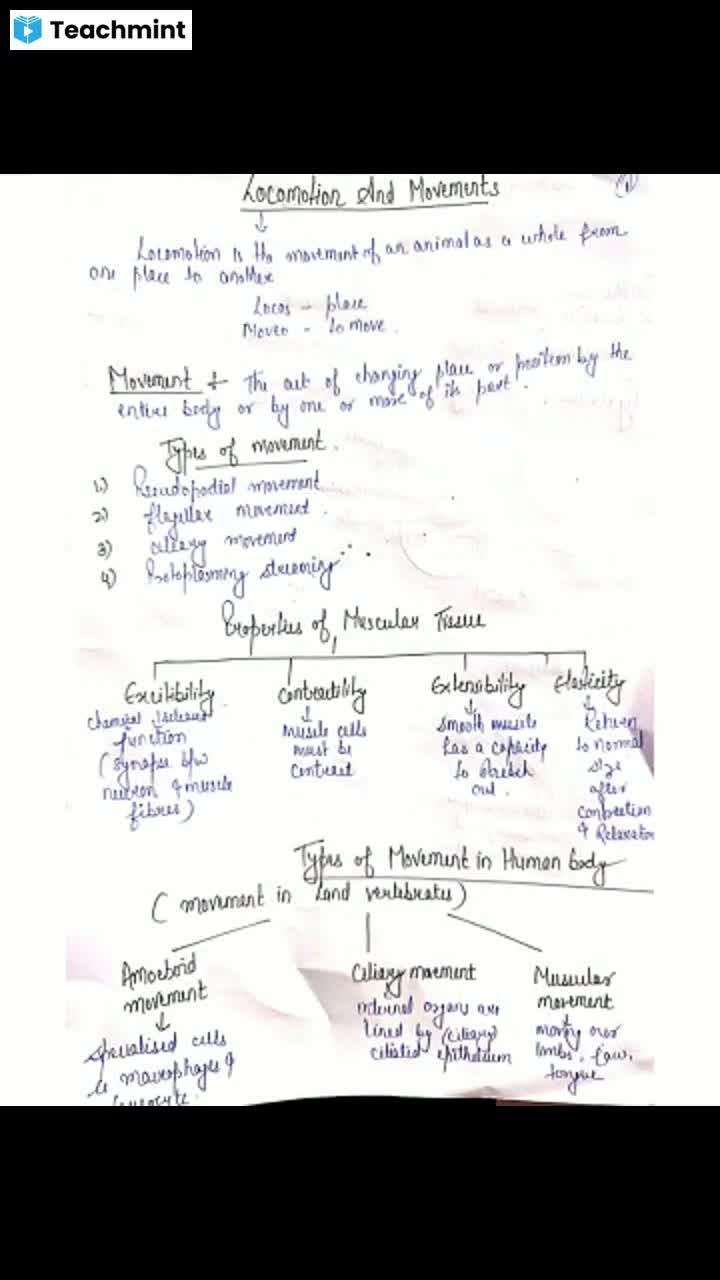 Teachmint
Locomotion And Movements
Locomotion is the movement of an animal as a whole from
one place to another
Locos - place
Moveo - to move.
Movement The act of changing place or position by the
entire body or by one or more of its part.
Types of movement.
1) Pseudopodial movement.
2) flagellar movement.
3) ciliary movement
4) streaming
Properties of Muscular Tissue
Excitibility Contractility Extensibility Elasticity
chemical function (synapse b/w neuron & muscle fibres)
Muscle cells must be contract
Smooth muscle has a capacity to stretch out.
Return to normal size after & Relaxation
Types of Movement in Human body
(movement in Land vertebrates)
Amoeboid movement
Ciliary movement
Muscular movement
specialised cells macrophages &
internal organs are lined by (ciliary) ciliated epithelium
limbs, jaw, tongue